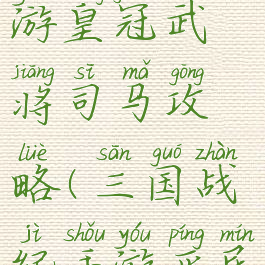 游皇冠武
jiāng sī mǎ gōng
将司马攻
lüè sān guó zhàn
略(三国战
jì shǒu yóu píng mín
纪手游平民